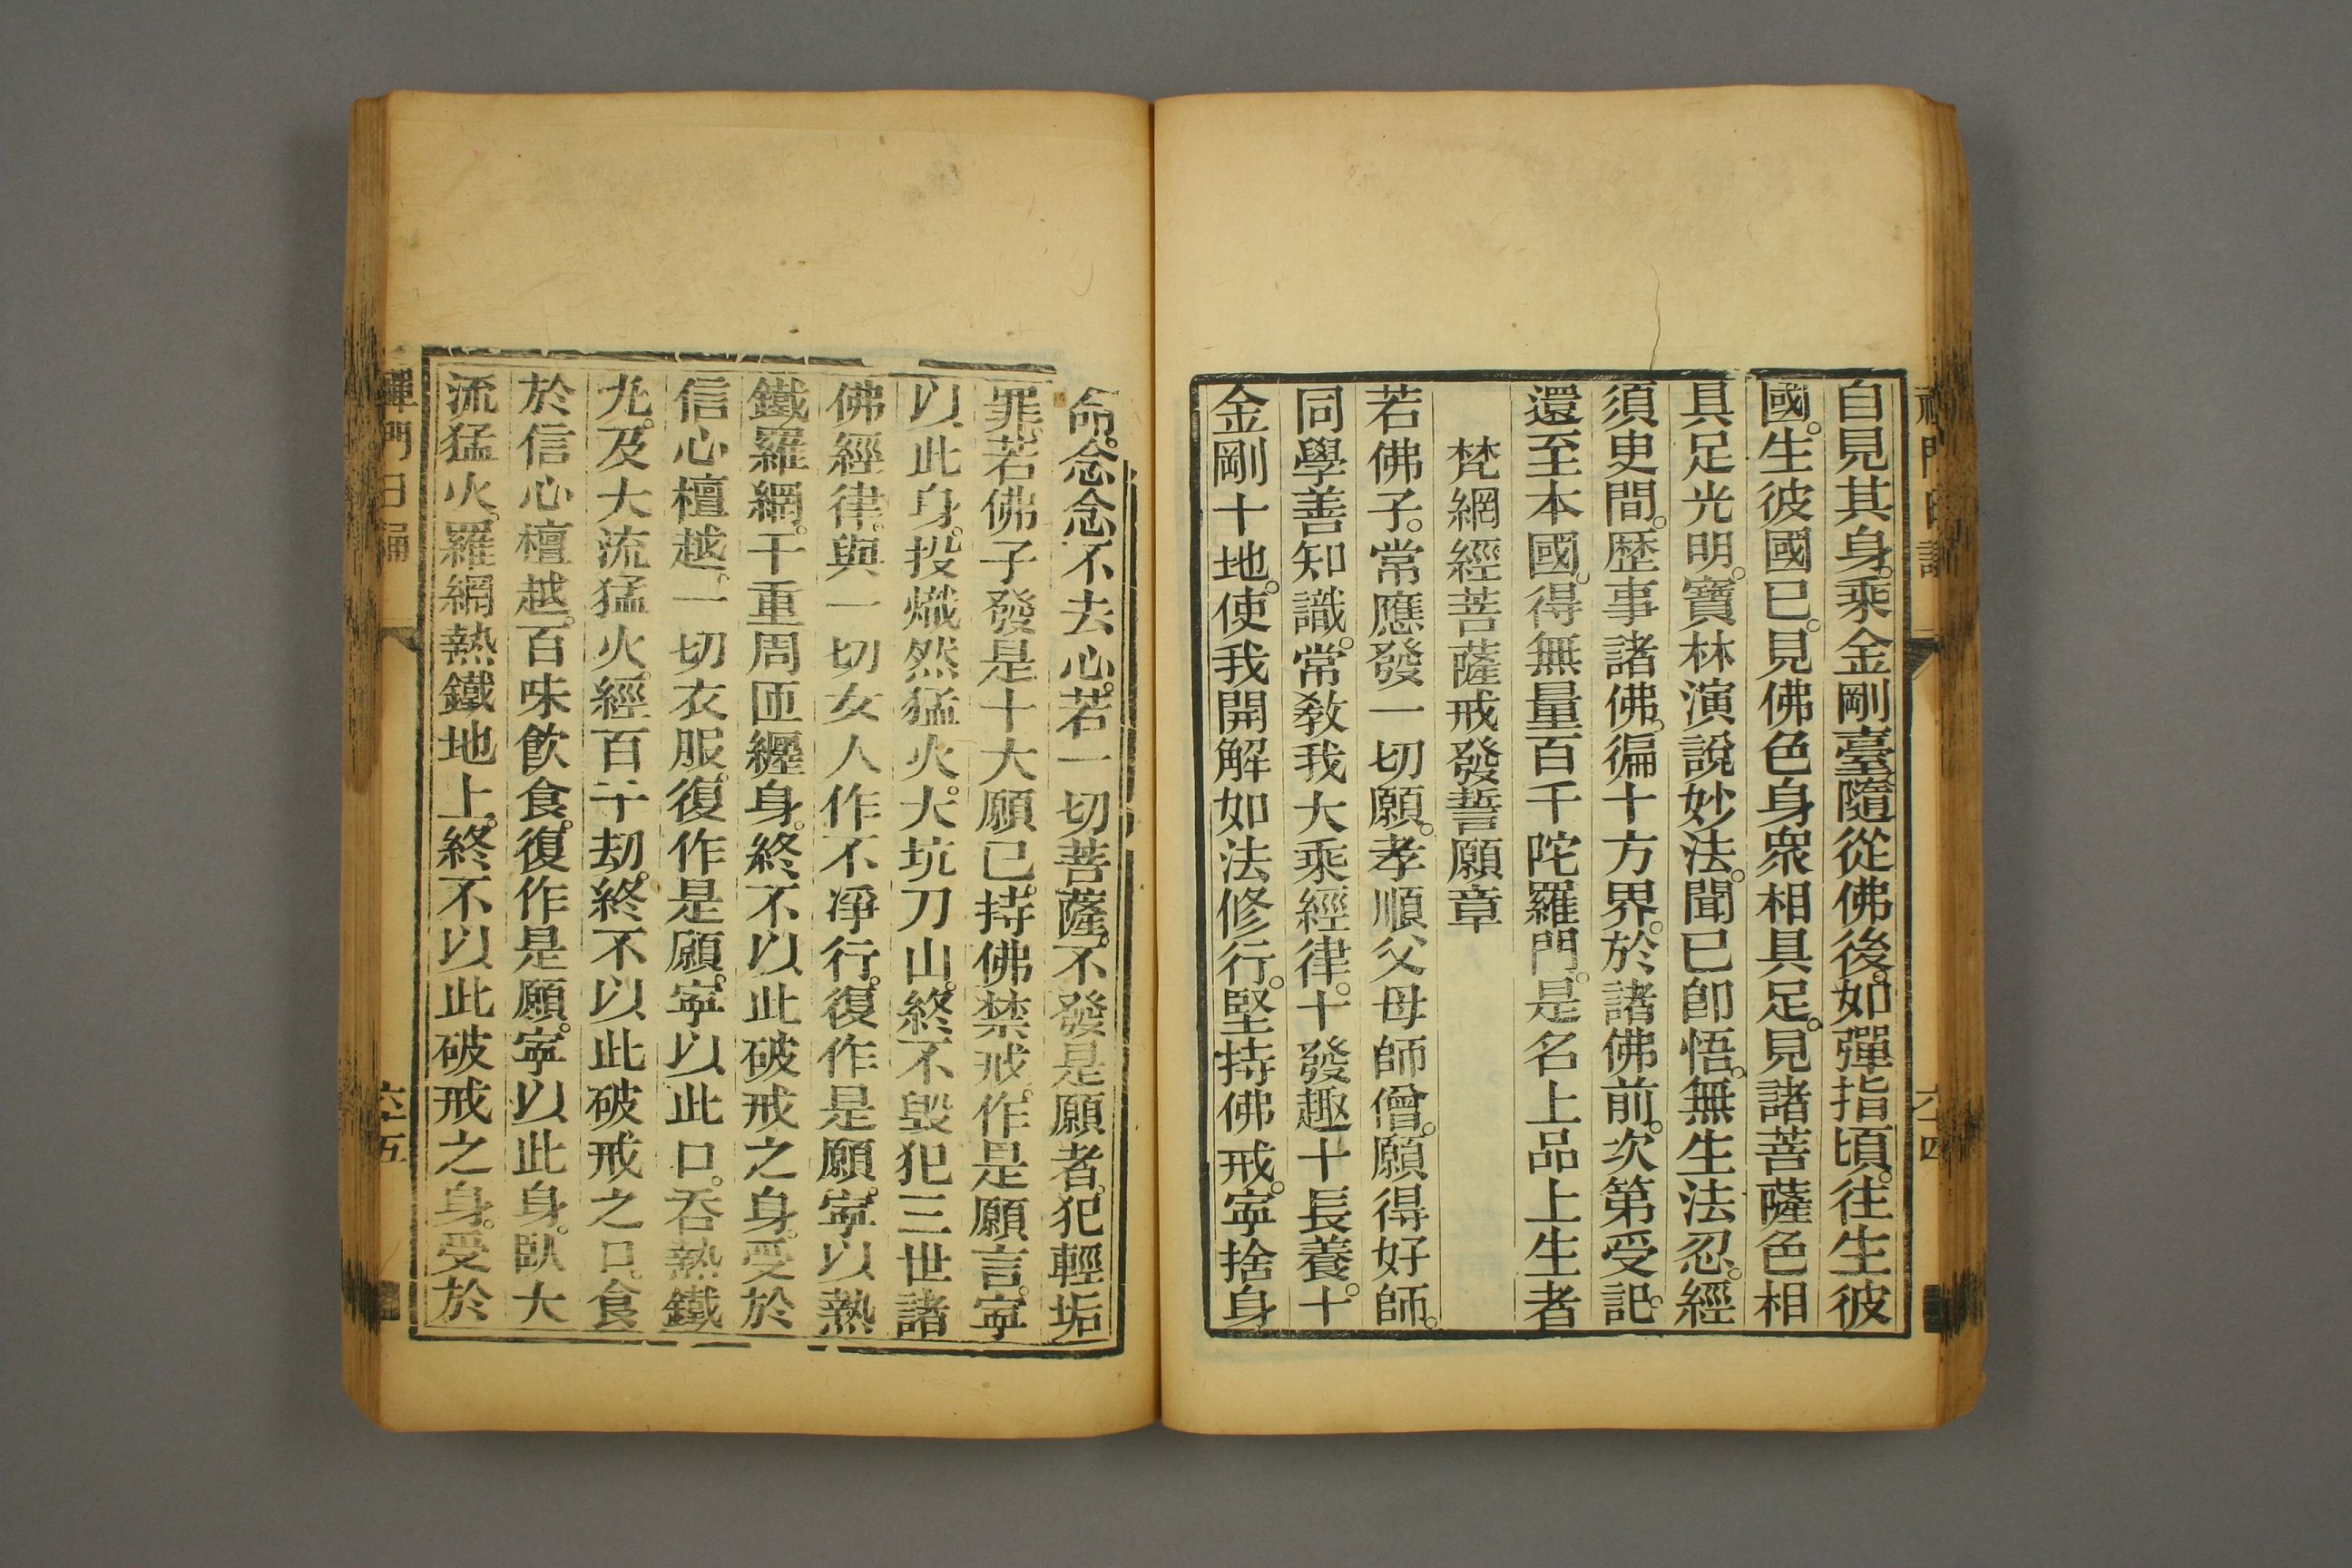 自見其身。乘金剛臺。隨從佛後。如彈指頃。往生彼
國。生彼國已。見佛色身衆相具足。見諸菩薩色相
具足。光明寶林。演說妙法。聞已卽悟。無生法忍。經
須臾間。歷事諸佛。徧十方界。於諸佛前。次第受記。
還至本國。得無量百千陀羅門。是名上品上生者
梵網經菩薩戒發誓願章
若佛子。常應發一切願。孝順父母師僧。願得好師。
同學善知識。常教我大乘經律。十發趣十長養。十
金剛十地。使我開解如法修行。堅持佛戒。寧捨身
命。念念不去心。若一切菩薩。不發是願者。犯輕垢
罪。若佛子發是十大願已。持佛禁戒。作是願言。寧
以此身。投熾然猛火。大坑刀山。終不毀犯三世諸
佛經律。與一切女人作不淨行。復作是願。寧以熱
鐵羅網。千重周匝纏身。終不以此破戒之身。受於
信心檀越。一切衣服。復作是願。寧以此口。吞熱鐵
丸。及大流猛火。經百千劫。終不以此破戒之口。食
於信心檀越。百味飲食。復作是願。寧以此身。臥大
流猛火。羅網熱鐵地上。終不以此破戒之身。受於
禪門日誦
六十五